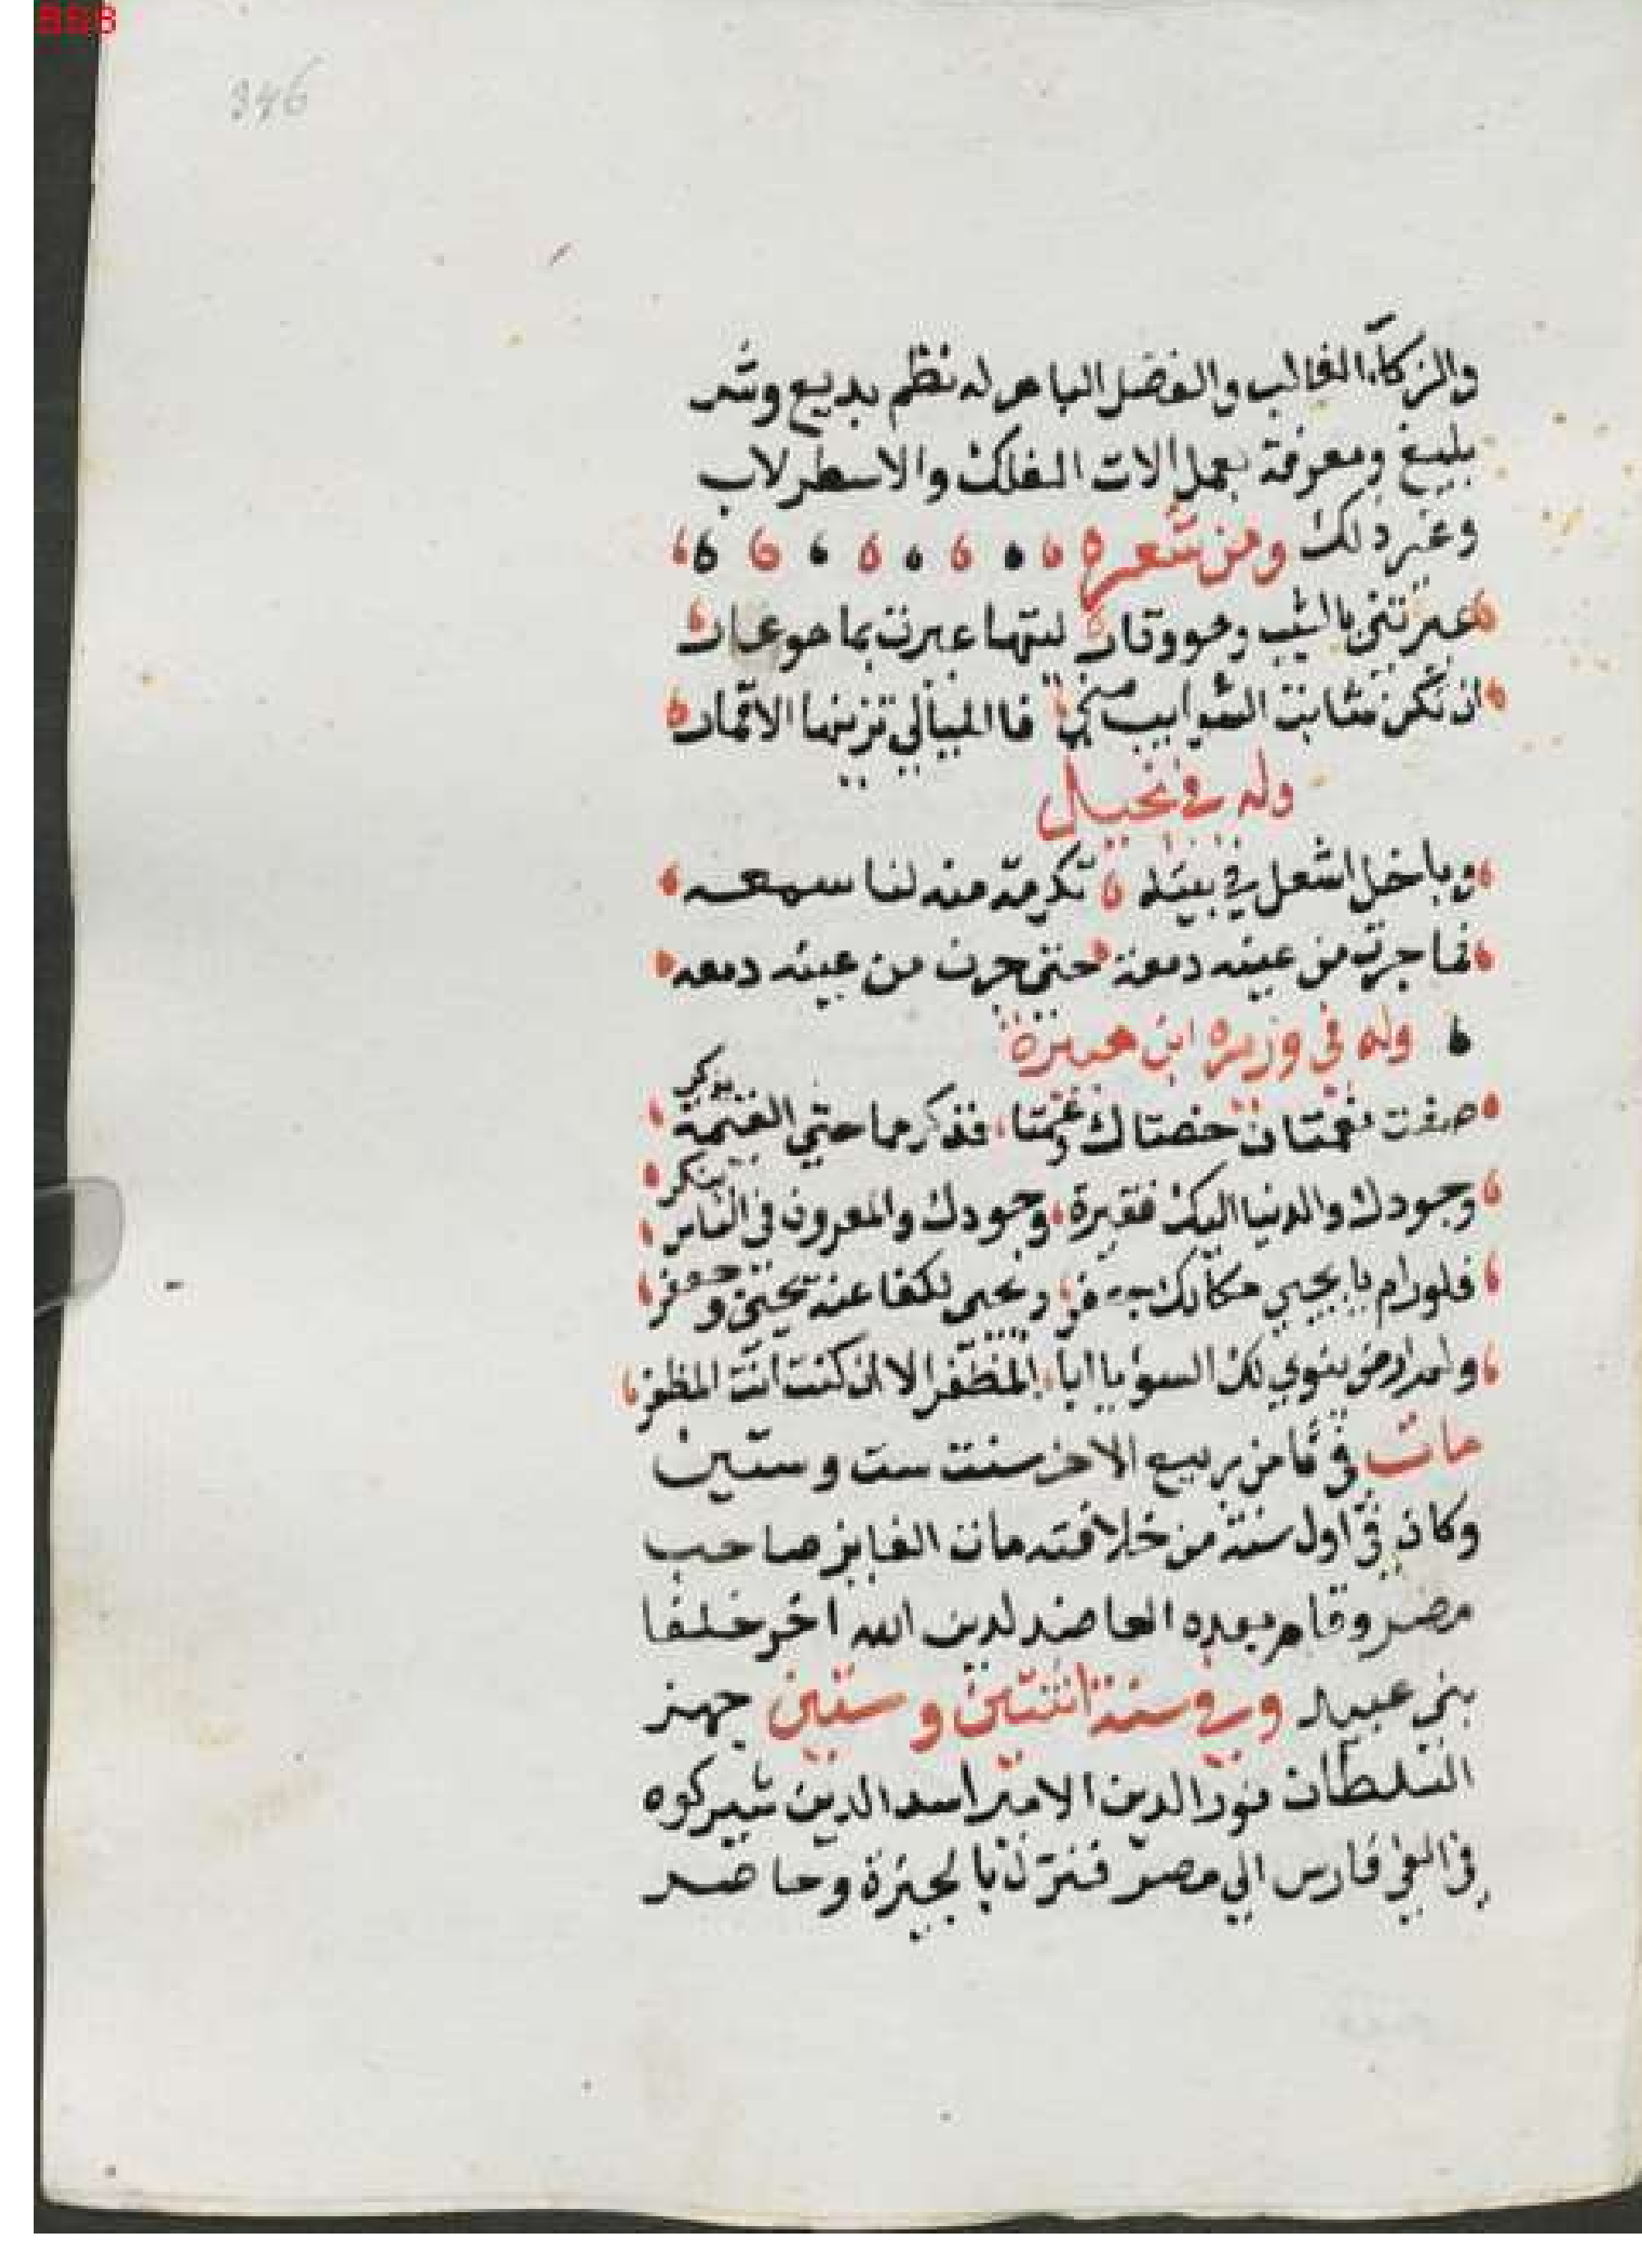 346
والزكآء الغالب والفضل الباهر له نظم بديع ونثر
بليغ ومعرفة بعمل الات الفلك والاسطرلاب
وغير ذلك ومن شعره
عيرتني بالشيب وهو وقار ليتها عيرت بما هو عار
ان تكن شابت الذوايب مني فالليالي تزينها الاقمار
وله في بخيل
وباخل اشعل في بيته تكرمة منه لنا شمعه
فما جرت من عينه دمعة حتي جرت من عينه دمعه
وله في وزيره ابن هبيرة
صفت نعمتان خصتاك وعمتا فذكرهما حتي القيمة يذكر
وجودك والدنيا اليك فقيرة وجودك والمعروف في الناس ينكر
فلو رام يا يحيي مكانك جعفر ويحيى لكفا عنه يحيى وجعفر
ولم ار من ينوي لك السؤ يا ابا المظفر الا ان كنت انت المظفر
مات في ثامن ربيع الاخر سنت ست وستين
وكان في اول سنة من خلافته مات الفايز صاحب
مصر وقام بعده العاضد لدين الله اخر خلفا
بني عبيد وفي سنة اثنتين وستين جهز
السلطان نور الدين الامير اسد الدين شيركوه
في الفي فارس الي مصر فنزل بالجيزة وحاصر